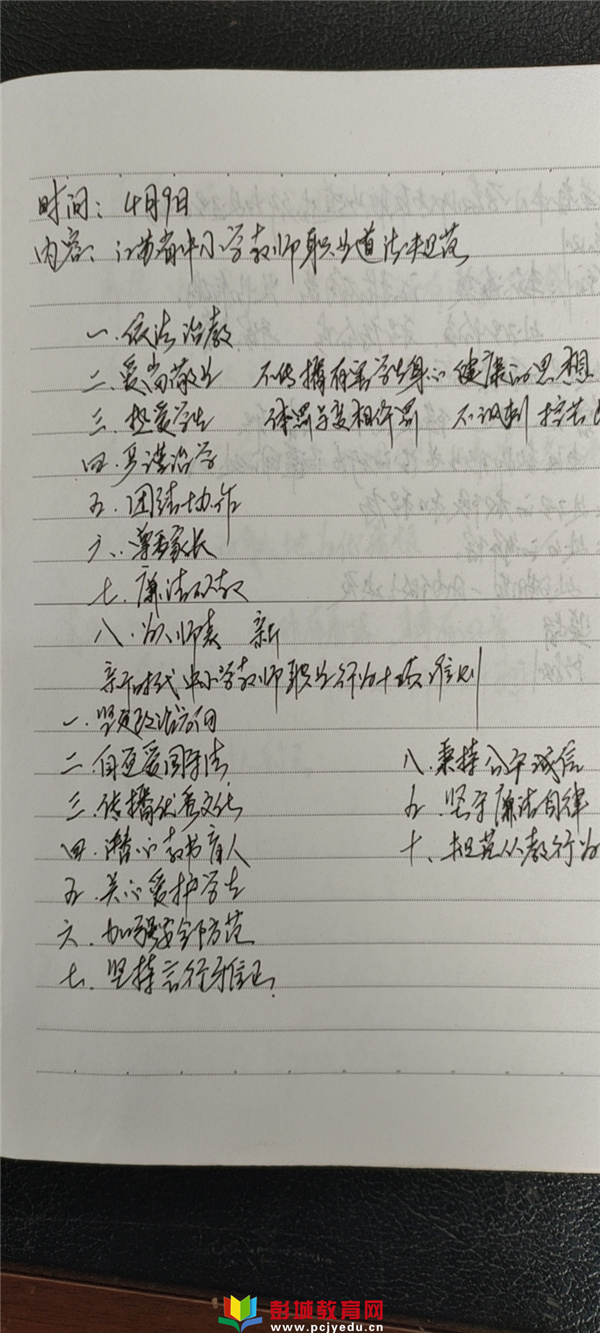 时间：4月9日
内容：江苏省中小学教师职业道德规范
一.依法治教
二.爱岗敬业 不传播有害学生身心健康的思想
三.热爱学生 体罚与变相体罚 不讽刺 挖苦
四.严谨治学
五.团结协作
六.尊重家长
七.廉洁从教
八.为人师表 新
新时代中小学教师职业行为十项准则
一.坚定政治方向
二.自觉爱国守法
三.传播优秀文化
四.潜心教书育人
五.关心爱护学生
六.加强安全防范
七.坚持言行雅正
八.秉持公平诚信
九.坚守廉洁自律
十、规范从教行为
彭城教育网
www.pcjyedu.cn